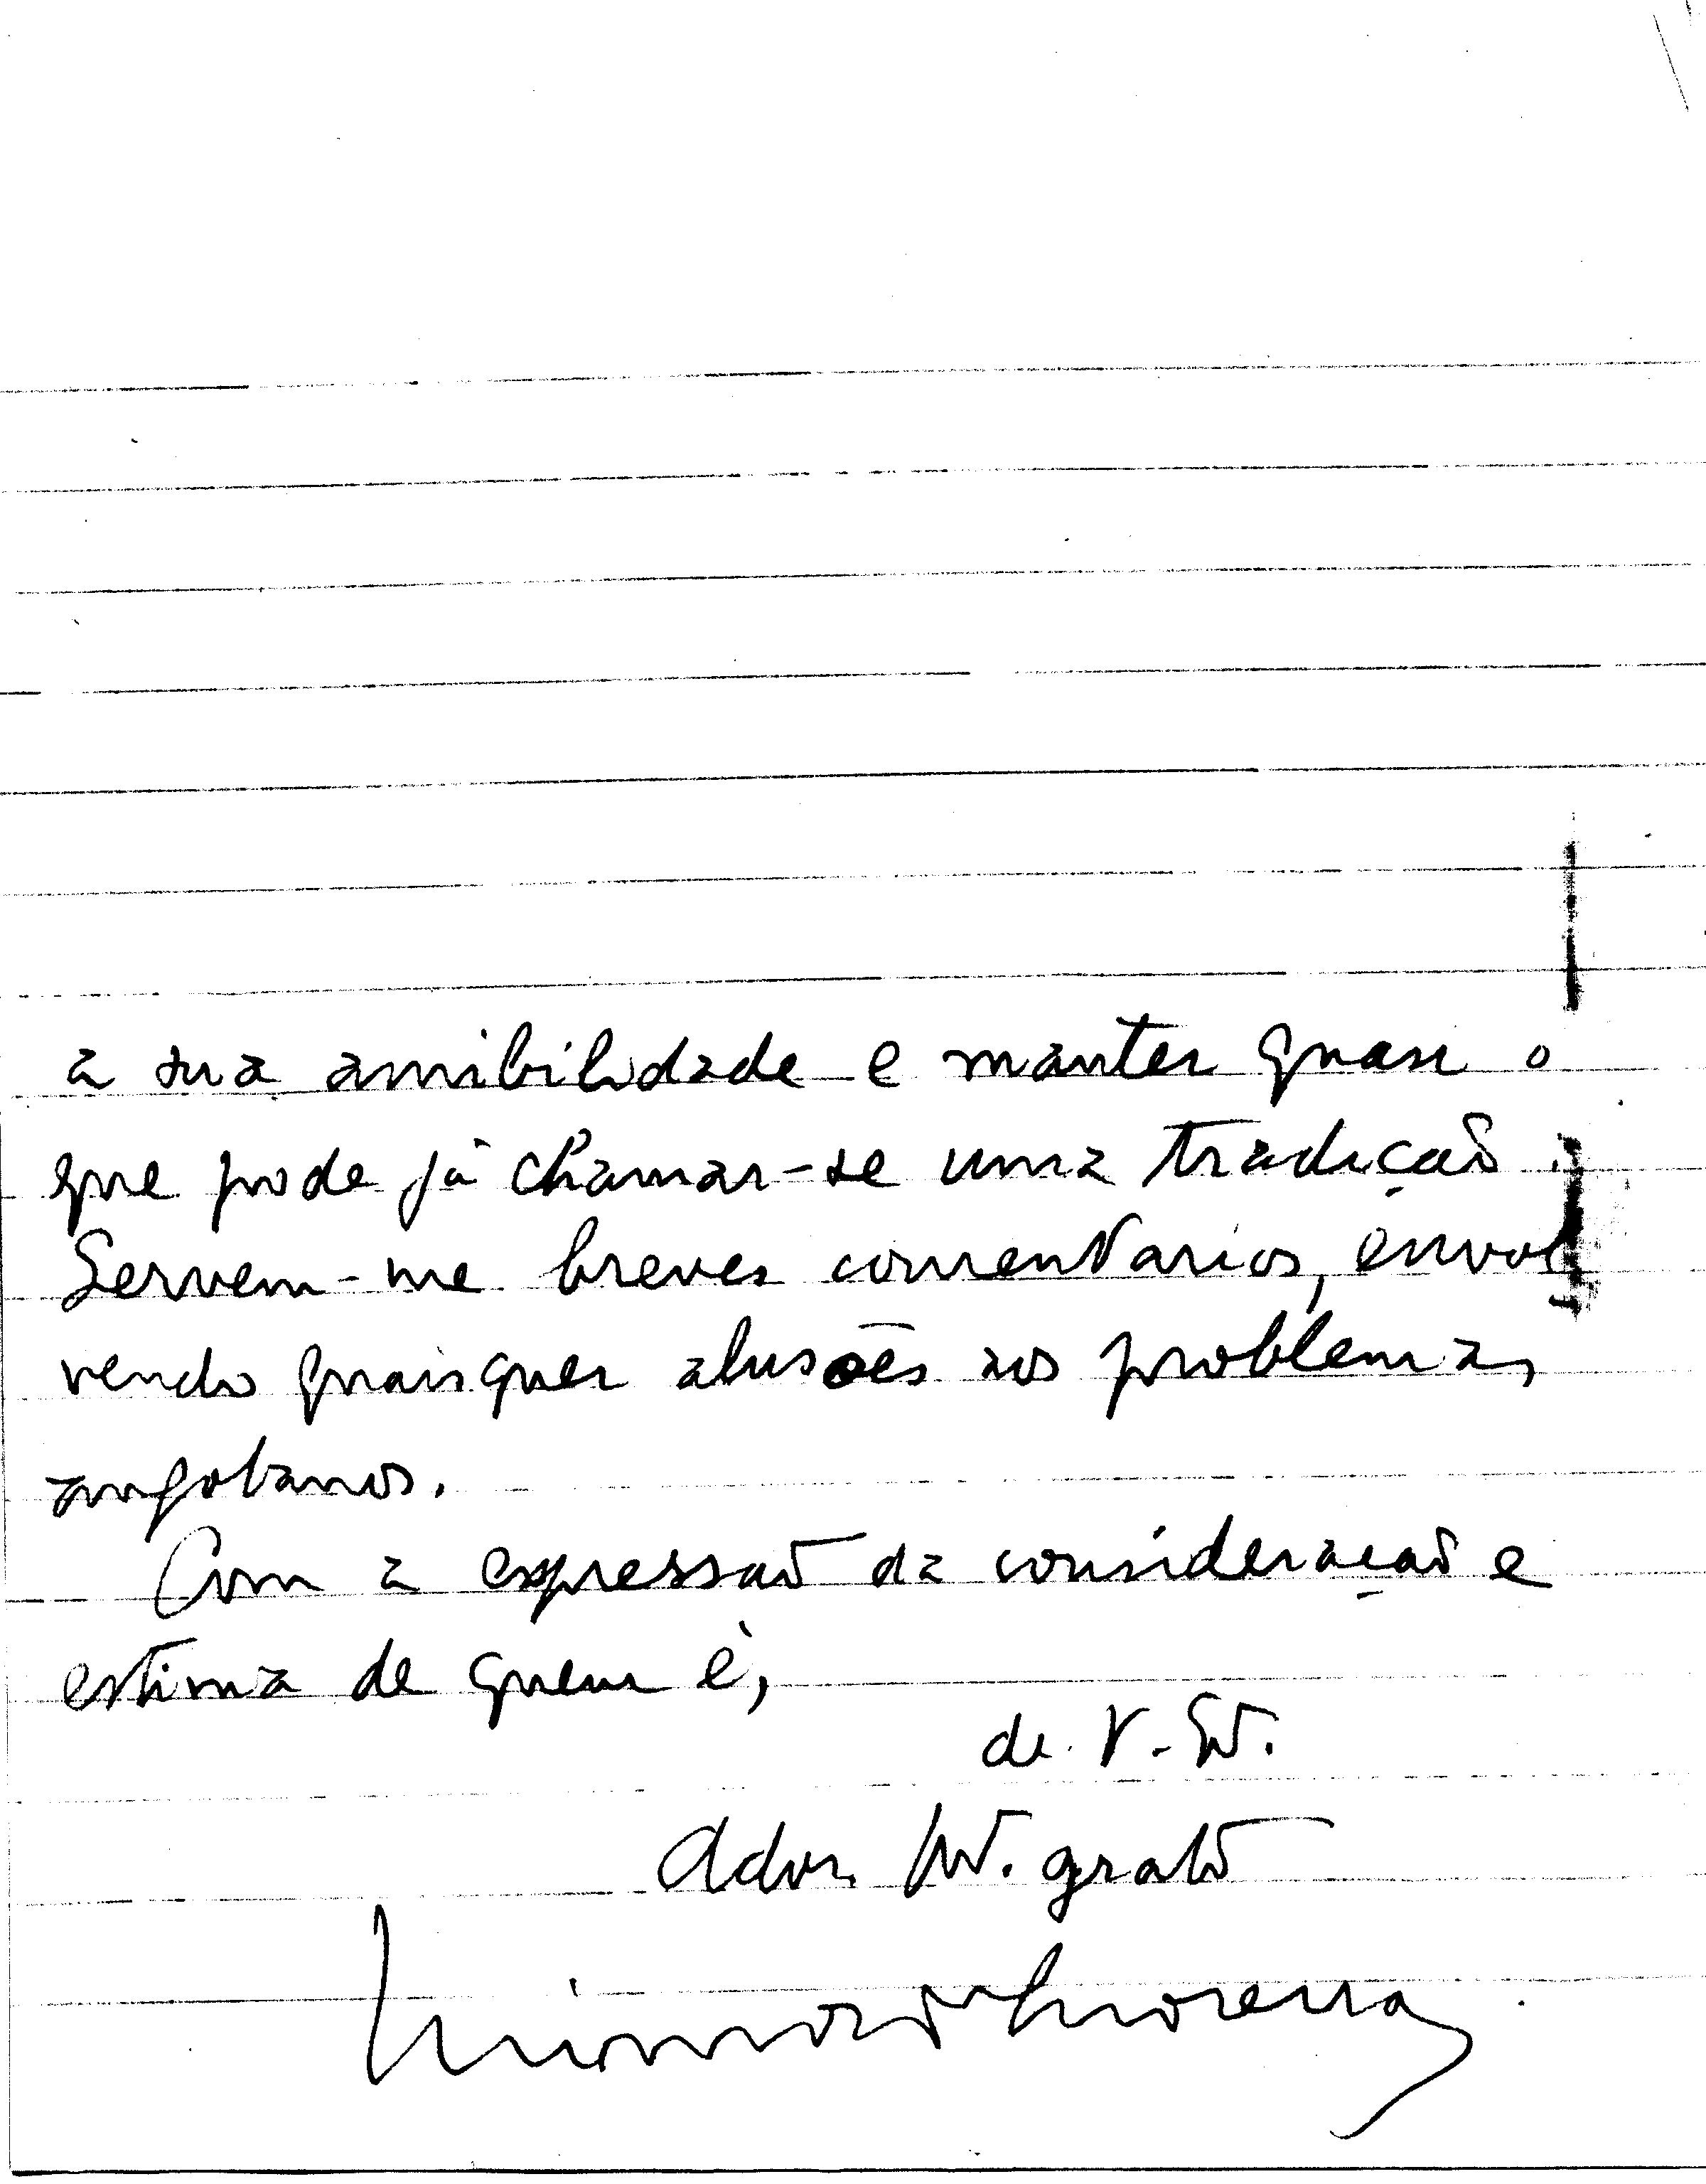 a sua amibilidade e manter quase o
que pode já chamar-se uma tradição.
Servem-me breves comentarios, envol
vendo quaisquer alusões aos problemas
angolanos.
Com a expressão da consideração e
estima de quem é,
de V.
grato